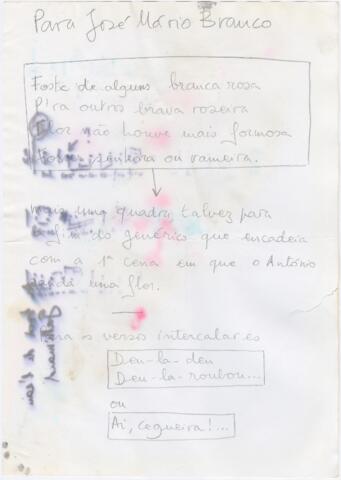 Para José Mário Branco
Foste de alguns branca rosa
P'ra outros brava roseira
Flor não houve mais formosa
senhora ou rameira.
mais uma quadra talvez para
o fim do genérico que encadeia
com a 1ª cena em que o António
uma flor.
os versos intercalares
Deu-la-deu
Deu-la-roubou...
ou
Ai, cegueira!...